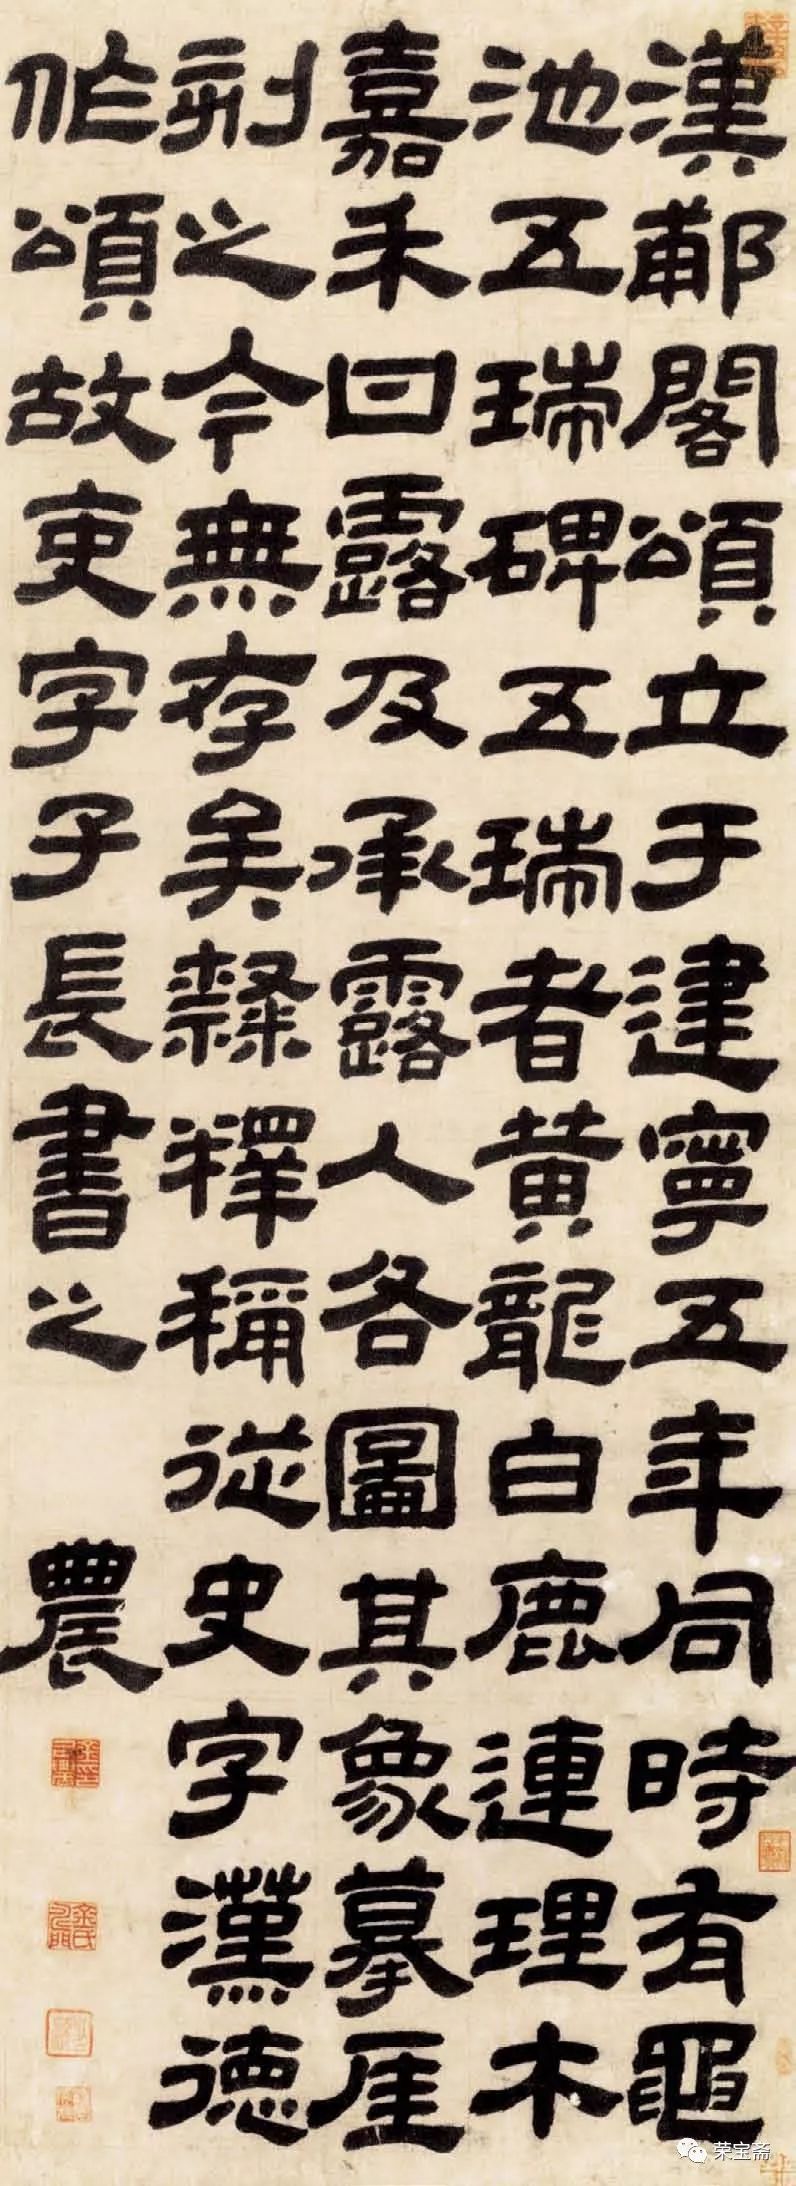 漢郙閣頌立于建寧五年同時有黽
池五瑞碑五瑞者黄龍白鹿連理木
嘉禾甘露及承露人各圖其象摹厓
刻之今無存矣隸釋稱從史字漢德
作頌故吏字子長書之 農
荣宝斋